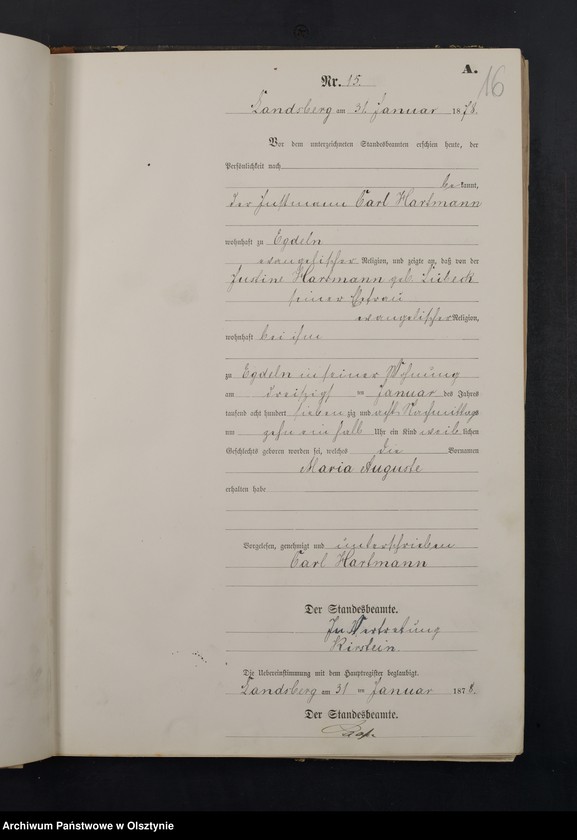 A.
16
Nr. 15.
Landsberg am 31. Januar 1878.
Vor dem unterzeichneten Standesbeamten erschien heute, der
Persönlichkeit nach
bekannt,
der Instmann Carl Hartmann
wohnhaft zu Egdeln
evangelischer Religion, und zeigte an, daß von der
Justine Hartmann geb. Lübeck
seiner Ehefrau
evangelischer Religion,
wohnhaft bei ihm
zu Egdeln in seiner Wohnung
am dreißigsten Januar des Jahres
tausend acht hundert siebenzig und acht Nachmittags
um zehn ein halb Uhr ein Kind weiblichen
Geschlechts geboren worden sei, welches die Vornamen
Maria Auguste
erhalten habe
Vorgelesen, genehmigt und unterschrieben
Carl Hartmann
Der Standesbeamte.
In Vertretung
Kirstein
Die Uebereinstimmung mit dem Hauptregister beglaubigt.
Landsberg am 31 ten Januar 1878.
Der Standesbeamte.
Archiwum Państwowe w Olsztynie